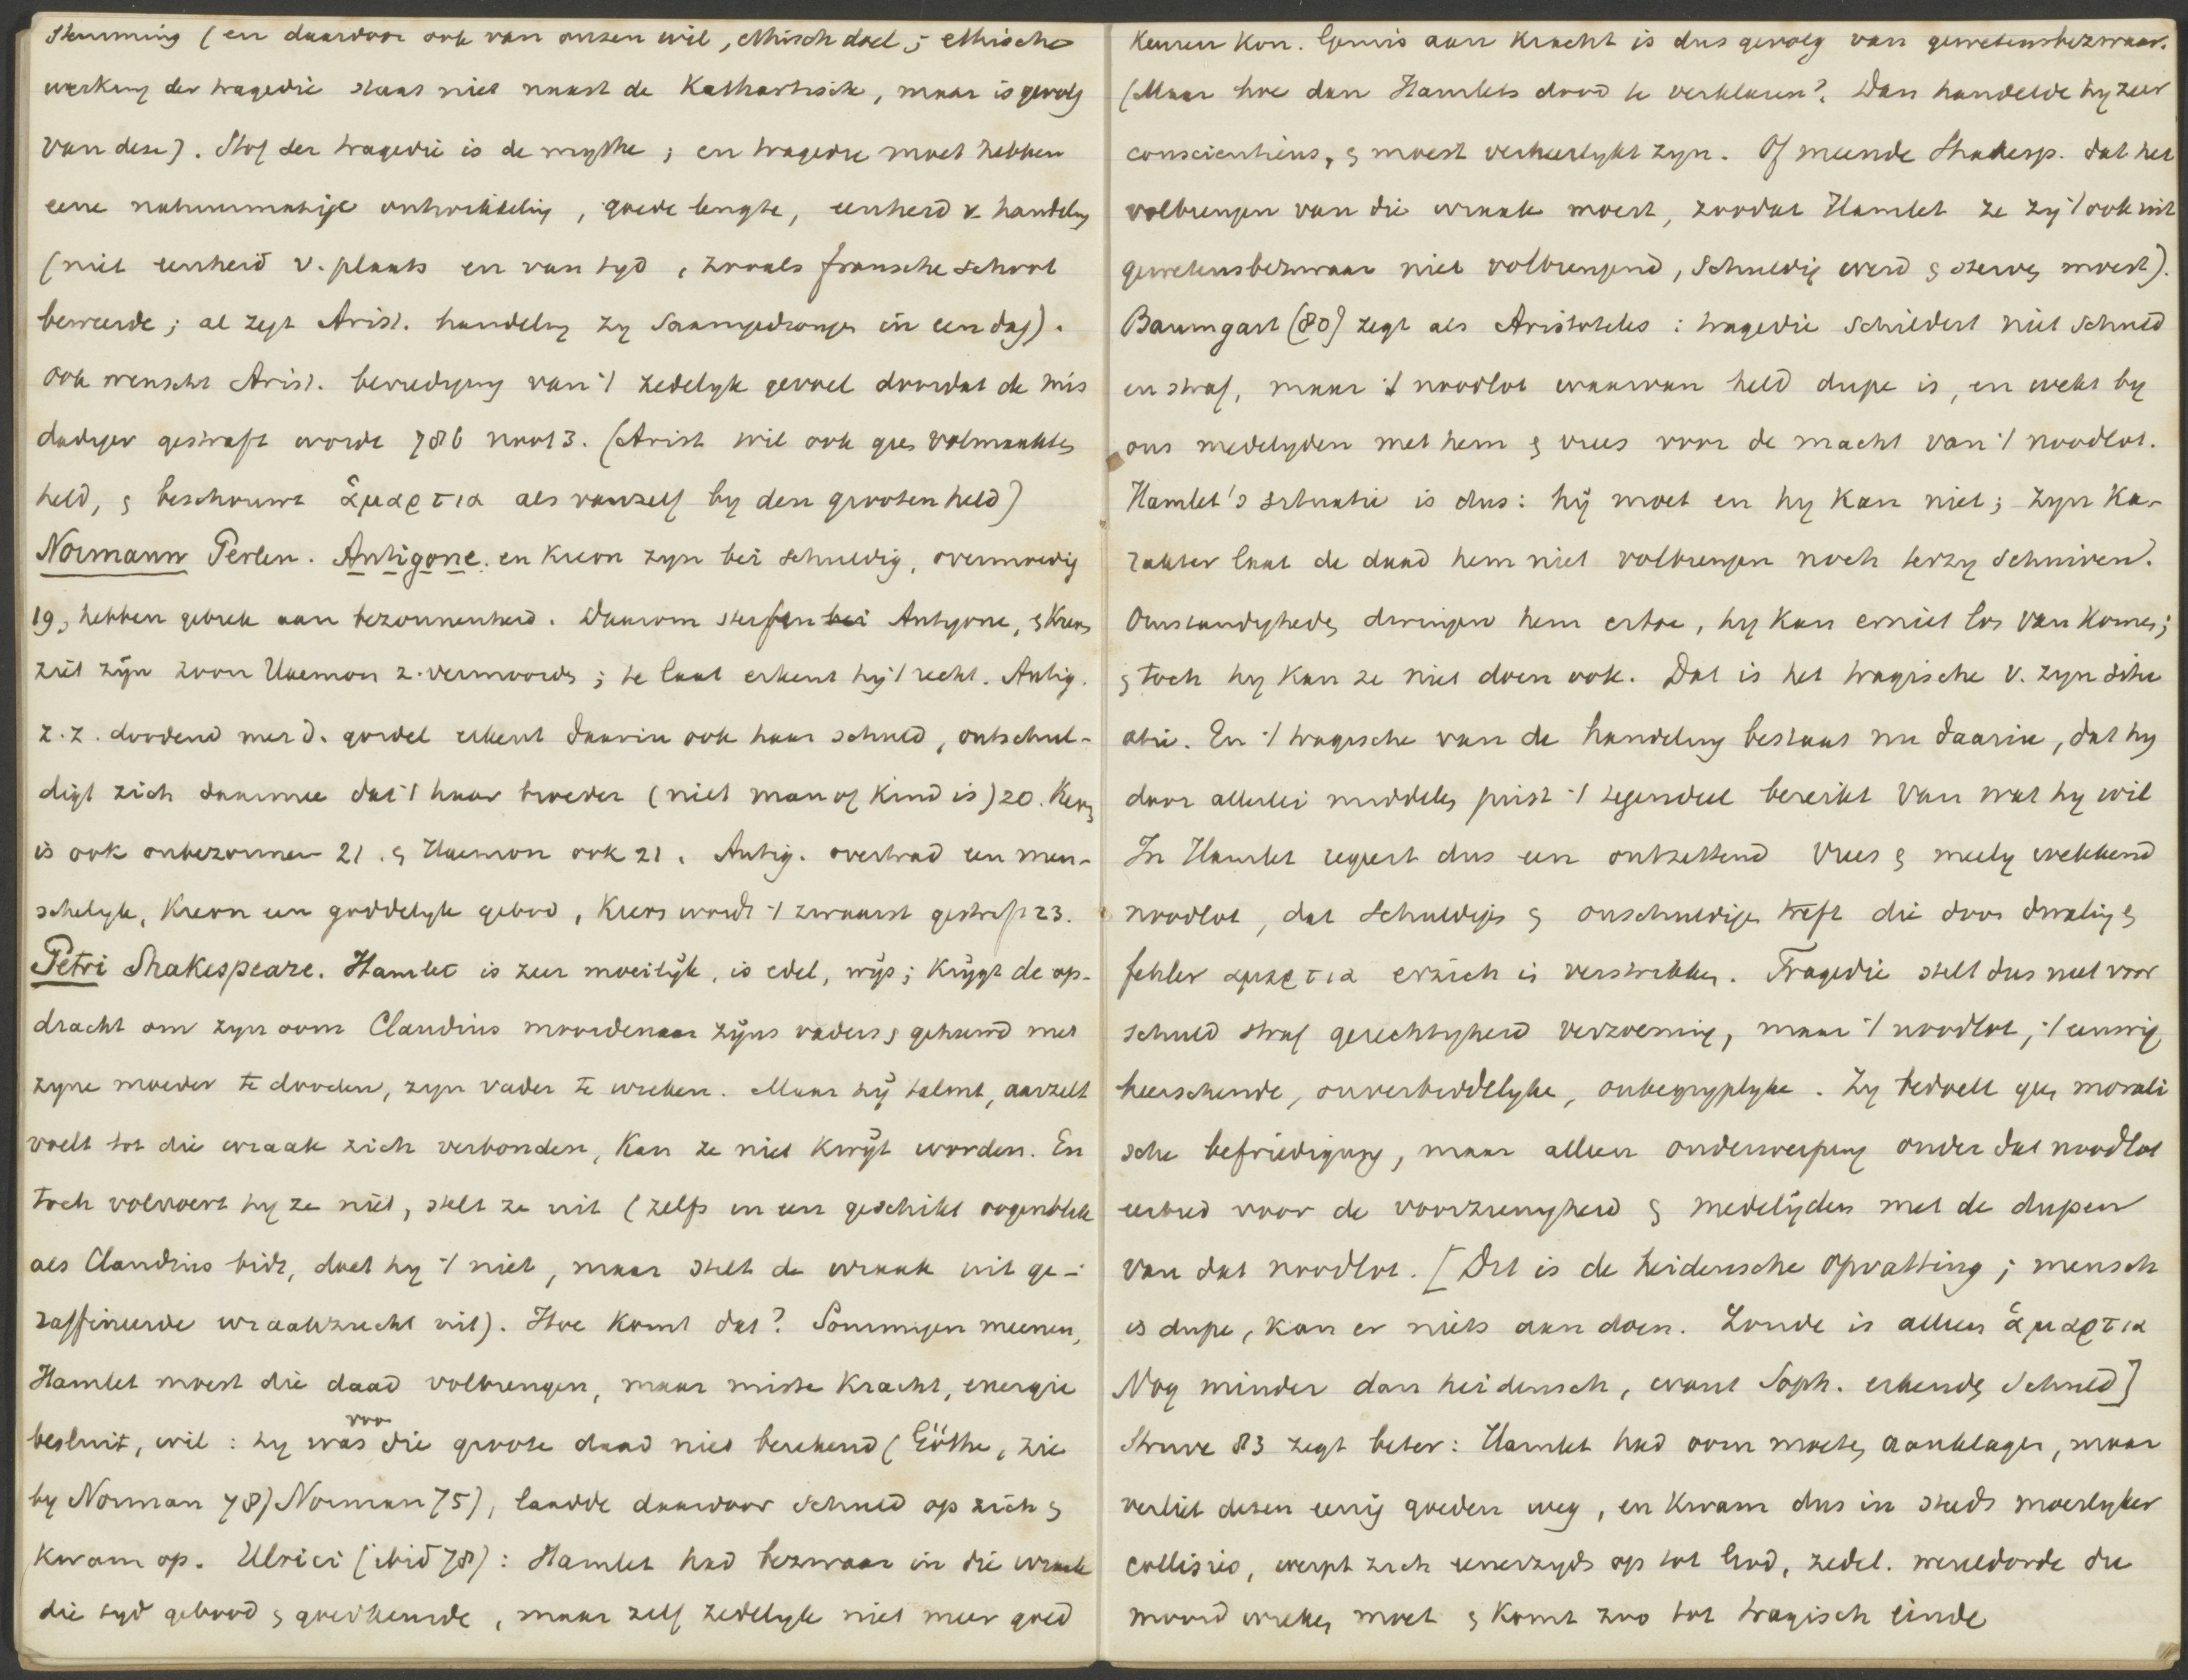 stemming (en daardoor ook van onzen wil, ethisch doel; ethische
werking der tragedie staat niet naast de Kathartische, maar is gevolg
van deze). Stof der tragedie is de mythe; en tragedie moet hebben
eene natuurmatige ontwikkeling, goede lengte, eenheid v handeling
(niet eenheid v. plaats en van tyd, zooals fransche school
beweerde; al zegt Arist. handeling zy saamgedrongen in een dag).
ook wenscht Arist. bevrediging van 't zedelyk gevoel doordat de mis
dadiger gestraft wordt 786 noot 3. (Arist wil ook geen volmaakten
held, & beschouwt ἁμαρτια als vanzelf by den grooten held)
Normann Perlen. Antigone. en Kreon zyn bei schuldig, overmoedig
19, hebben gebrek aan bezonnenheid. Daarom sterfen bei Antigone, & Kreon
ziet zijn zoon Haemon z. vermoorden; te laat erkent hij 't recht. Antig.
z.z. doodend met d. gordel erkent daarin ook haar schuld, ontschul-
digt zich daarmee dat 't haar broeder (niet man of kind is) 20. Kreon
is ook onbezonnen 21. & Haemon ook 21. Antig. overtrad een men-
schelyk, Kreon een goddelyk gebod, Kreon wordt 't zwaarst gestraft 23.
Petri Shakespeare. Hamlet is zeer moeilijk, is edel, wijs; krijgt de op-
dracht om zyn oom Claudius moordenaar zijns vaders & gehuwd met
zyne moeder te dooden, zyn vader te wreken. Maar hij talmt, aarzelt
voelt tot die wraak zich verbonden, kan ze niet kwijt worden. En
toch volvoert hy ze niet, stelt ze uit (zelfs in een geschikt oogenblik
als Claudius bidt, doet hy 't niet, maar stelt de wraak uit ge-
raffineerde wraakzucht uit). Hoe komt dat? Sommigen meenen,
Hamlet moest die daad volbrengen, maar miste kracht, energie
besluit, wil: hy was voor die groote daad niet berekend (Göthe, zie
by Norman 78) Norman 75), laadde daardoor schuld op zich &
kwam op. Ulrici (ibid 78): Hamlet had bezwaar in die wraak
die tyd gebood & goedkeurde, maar zelf zedelyk niet meer goed
keuren kon. Gemis aan kracht is dus gevolg van gewetensbezwaar.
(Maar hoe dan Hamlets dood te verklaren? Dan handelde hy zeer
conscientieus, & moest verheerlykt zyn. Of meende Shakesp. dat het
volbrengen van die wraak moest, zoodat Hamlet ze zij 't ook uit
gewetensbezwaar niet volbrengend, schuldig werd & sterven moest).
Baumgart (80) zegt als Aristoteles: tragedie schildert niet schuld
en straf, maar 't noodlot waarvan held dupe is, en wekt by
ons medelyden met hem & vrees voor de macht van 't noodlot.
Hamlet's situatie is dus: hij moet en hy kan niet; zyn Ka-
rakter laat de daad hem niet volbrengen noch terzy schuiven.
Omstandigheden dwingen hem ertoe, hy kan er niet los van komen;
& toch hy kan ze niet doen ook. Dat is het tragische v. zyn situ
atie. En 't tragische van de handeling bestaat nu daarin, dat hy
door allerlei middelen juist 't tegendeel bereikt van wat hy wil
In Hamlet regeert dus een ontzettend vrees & meely wekkend
noodlot, dat schuldige & onschuldige treft die door dwaling &
fehler αμαρτια erzich in verstrikken. Tragedie stelt dus niet voor
schuld straf gerechtigheid verzoening, maar 't noodlot, 't eeuwig
heerschende, onverbiddelyke, onbegrypelyke. Zy bedoelt geen morali
sche befriedigung, maar alleen onderwerping onder dat noodlot
eerbied voor de voorzienigheid & medelijden met de dupen
van dat noodlot. [Dit is de heidensche opvatting; mensch
is dupe, kan er niets aan doen. Zonde is alleen ἁμαρτια
Nog minder dan heidensch, want Soph. erkende schuld]
Struve 83 zegt beter: Hamlet had oom moeten aanklagen, maar
verliet dezen eenig goeden weg, en kwam dus in steeds moeilyker
collisies, werpt zich eenerzyds op tot God, zedel. wereldorde die
moord wreken moet & komt zoo tot tragisch einde